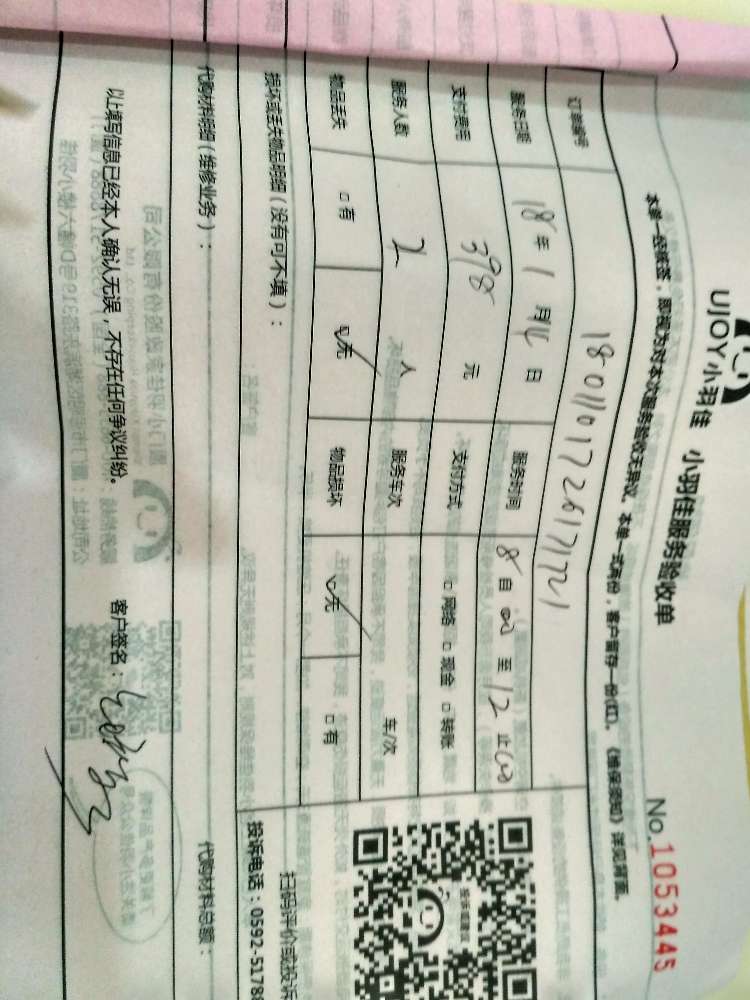 UJOY小羽佳 小羽佳服务验收单
No.1053445
本单一经核签，即视为对本次服务验收无异议。本单一式两份，客户留存一份(红)。《维保须知》详见背面。
订单编号 18011017226171721
服务日期 18年1月14日 服务时间 8自00至12止00
支付费用 398元 支付方式 □网络 □现金 □转账
服务人数 2人 服务车次 车/次
物品丢失 □有 □无 物品损坏 □无 □有
损坏或丢失物品明细（没有可不填）：
扫码评价或投诉
投诉电话：0592-5178
代购材料明细（维修业务）：
代购材料总额：
以上填写信息已经本人确认无误，不存在任何争议纠纷。 客户签名：